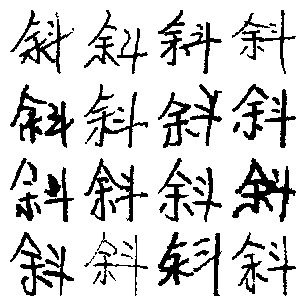 斜斜斜斜
斜斜斜斜
斜斜斜斜
斜斜斜斜